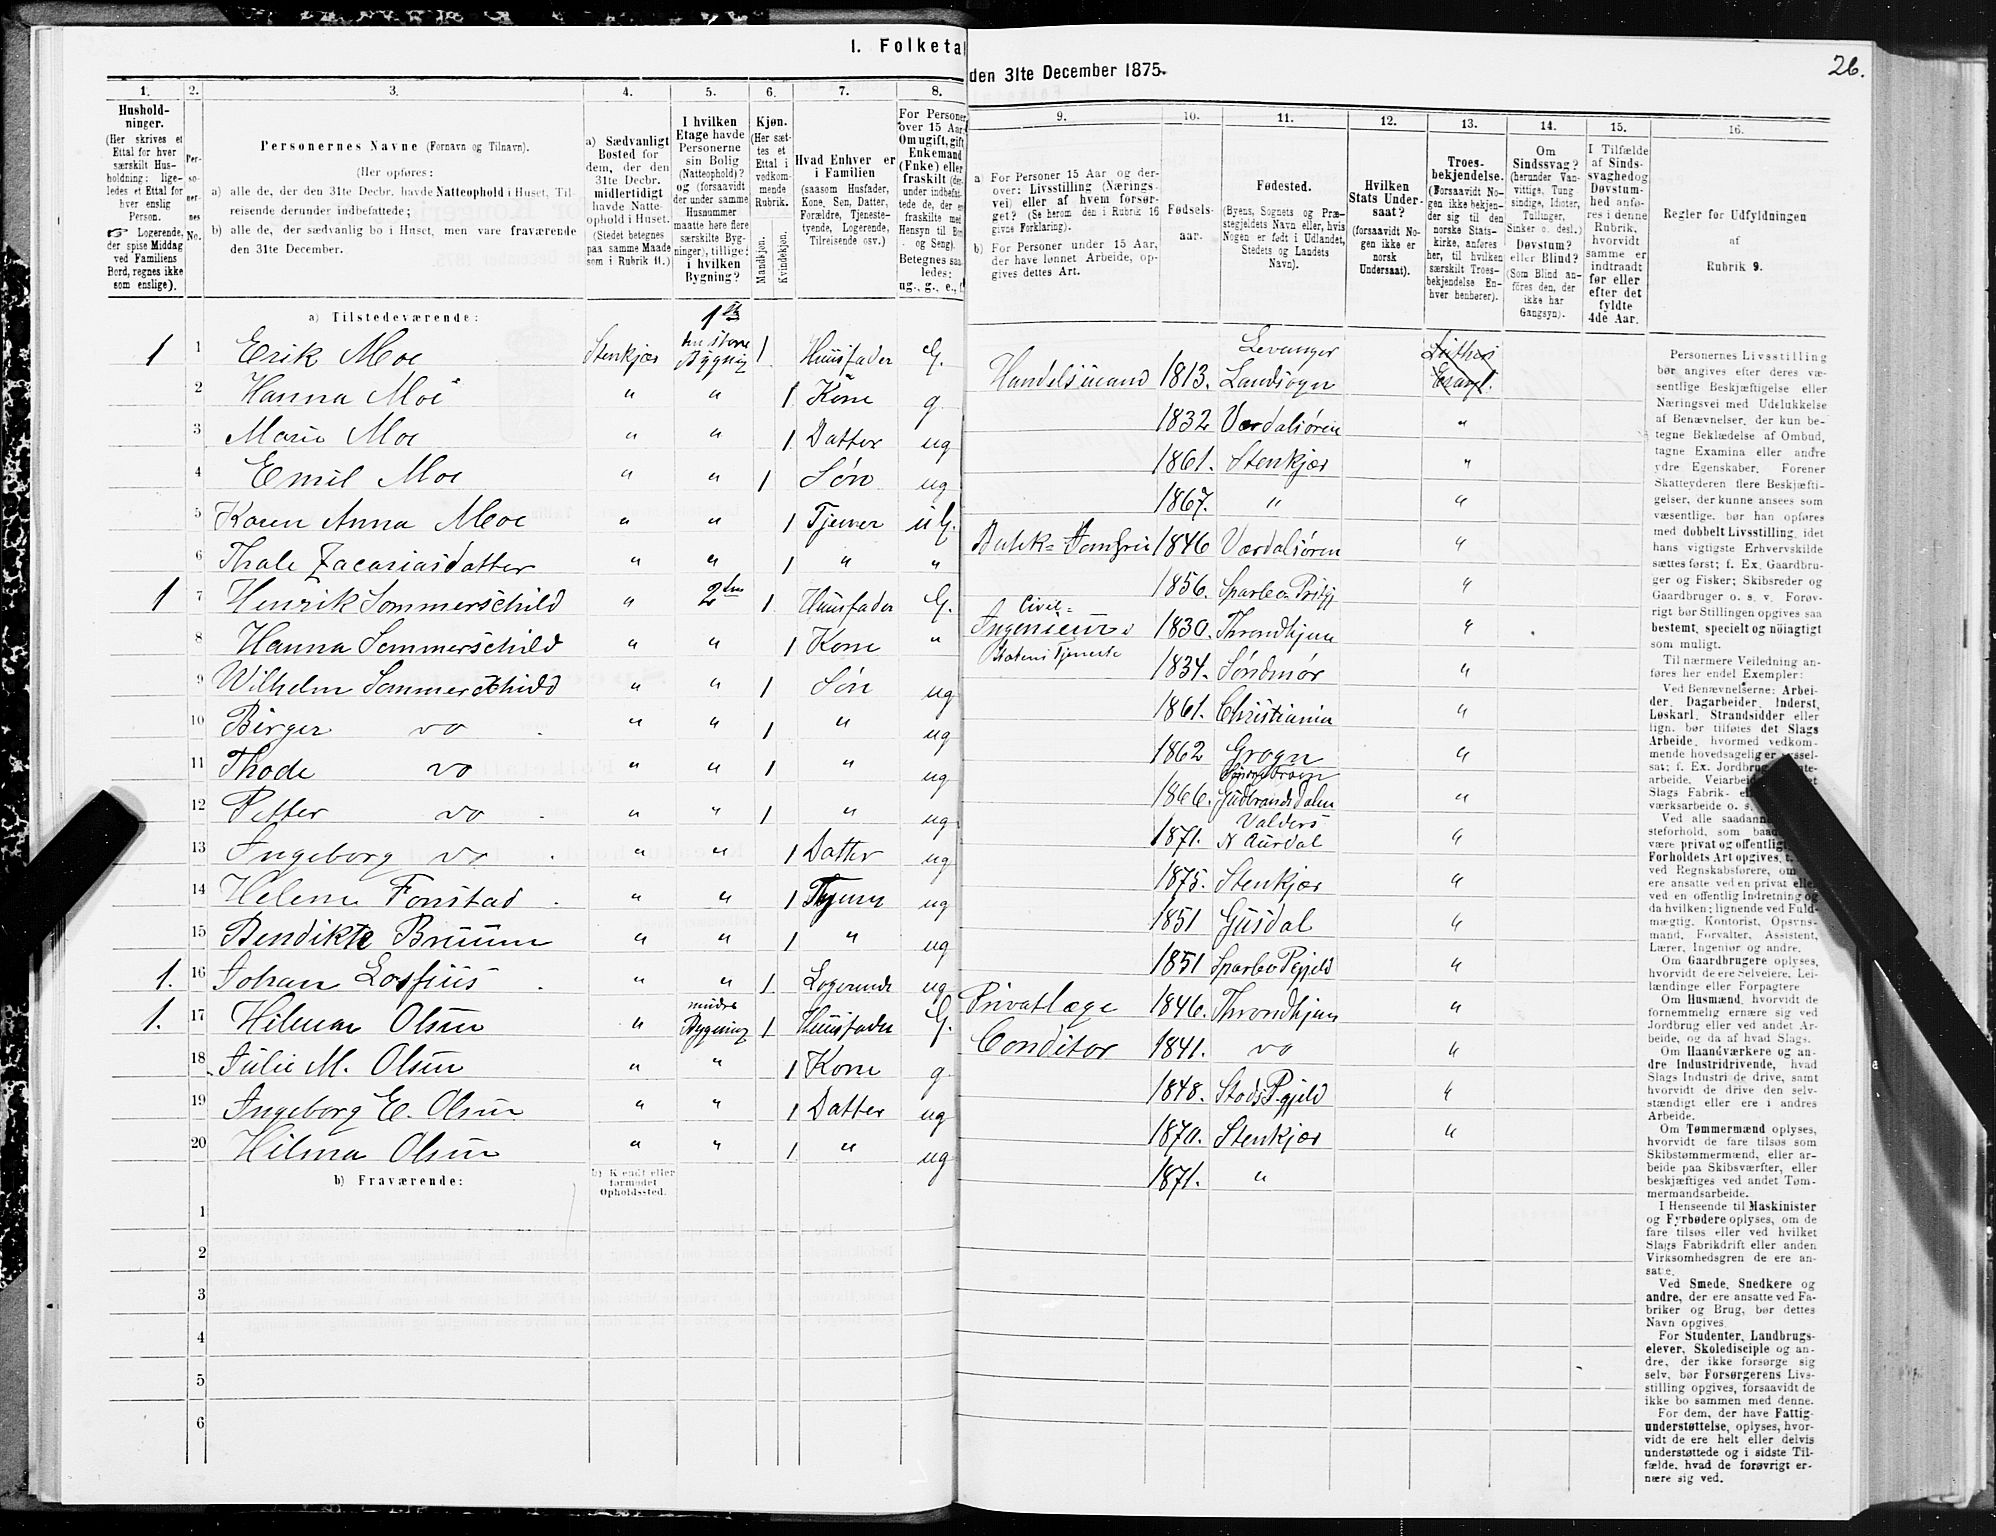 I. Folketal
den 31te December 1875.
26.
1. 2. 3. 4. 5. 6. 7. 8. 9. 10. 11. 12. 13. 14. 15. 16.
Hushold-
ninger.
(Her skrives et
Ettal for hver
særskilt Hus-
holdning; lige-
ledes et Ettal for
hver enslig
Person.
☞ Logerende,
der spise Middag
ved Familiens
Bord, regnes ikke
som enslige).
Per-
so-
ner-
nes
No.
Personernes Navne (Fornavn og Tilnavn).
(Her opføres:
a) alle de, der den 31te Decbr. havde Natteophold i Huset, Til-
reisende derunder indbefattede;
b) alle de, der sædvanlig bo i Huset, men vare fraværende
den 31te December.
a) Sædvanligt
Bosted for
dem, der den
31te Decbr.
midlertidigt
havde Natte-
ophold i Huset.
(Stedet betegnes
paa samme Maade
som i Rubrik 11.)
I hvilken
Etage havde
Personerne
sin Bolig
(Natteophold)?
og (forsaavidt
der under samme
Husnummer
maatte høre flere
særskilte Byg-
ninger), tillige:
i hvilken
Bygning?
Kjøn.
(Her sæt-
tes et
Ettal i
vedkom-
mende
Rubrik.
Mandkjøn.
Kvindekjøn.
Hvad Enhver er
i Familien
(saasom Husfader,
Kone, Søn, Datter,
Forældre, Tjeneste-
tyende, Logerende,
Tilreisende osv.)
For Personer
over 15 Aar:
Om ugift, gift
Enkemand
(Enke) eller
fraskilt (der-
under indbefat-
tede de, der ere
fraskilte med
Hensyn til Bord
og Seng).
Betegnes saa-
ledes:
ug., g., e., f.
a) For Personer 15 Aar og der-
over: Livsstilling (Nærings-
vei) eller af hvem forsør-
get? (Se herom den i Rubrik 16
givne Forklaring).
b) For Personer under 15 Aar,
der have lønnet Arbeide, op-
gives dettes Art.
Fødsels-
aar.
Fødested.
(Byens, Sognets og Præ-
stegjeldets Navn eller, hvis
Nogen er født i Udlandet,
Stedets og Landets
Navn).
Hvilken
Stats Under-
saat?
(forsaavidt No-
gen ikke er
norsk
Undersaat).
Troes-
bekjendelse.
(Forsaavidt No-
gen ikke bekjen-
der sig til den
norske Stats-
kirke, anføres
her, til hvilken
særskilt Troes-
bekjendelse En-
hver henhører).
Om
Sindssvag?
(herunder Van-
vittige, Tung-
sindige, Idioter,
Tullinger,
Sinker o. desl.)
Døvstum?
eller Blind?
(Som Blind an-
føres den, der
ikke har
Gangsyn).
I Tilfælde
af Sinds-
svaghed og
Døvstum-
hed anfø-
res i denne
Rubrik,
hvorvidt
samme er
indtraadt
før eller
efter det
fyldte
4de Aar.
Regler for Udfyldningen
af
Rubrik 9.
a) Tilstedeværende:
1 1 Erik Moe Stenkjær 1ste Bygning 1 Huusfader G. Handelsmand 1813. Levanger Landsogn Luthersk Evangl.
2 Hanna Moe " " 1 Kone g 1832 Værdalsøren "
3 Marie Moe " " 1 Datter ug 1861. Stenkjær "
4 Emil Moe " " 1 Søn ug 1867. " "
5 Karen Anna Moe " " 1 Tjener 1846 Værdalsøren "
6 Thale Zacariasdatter " " 1 " " 1856. "
1 7 Henrik Sommerschild " 2den 1 Huusfader G. Civil- Ingenieur i Statens Tjeneste 1830. Throndhjem "
8 Hanna Sommerschild " " 1 Kone " 1834. Søndmør "
9 Wilhelm Sommerschild " " 1 Søn ug 1861. Christiania "
10 Birger do " " 1 " ug 1862 "
11 Thode do " " 1 " ug 1866. Gudbrandsdalen "
12 Petter do " " 1 " ug 1871. Valders N Aurdal "
13 Ingeborg do " " 1 Datter ug 1875. Stenkjær "
14 Helene Fonstad " " 1 Tjener ug 1851 Gusdal "
15 Bendikte Bruun " " 1 " ug 1851 Sparbo Pgjeld "
1. 16 Johan " " 1 Logerende ug Privatlæge 1846. Throndhjem "
1. 17 Hilmar Olsen " midre Bygning 1 Huusfader G. Conditor 1841. do "
18 Julie M. Olsen " " 1 Kone g 1848. Stods Pgjeld "
19 Ingeborg E. Olsen " " 1 Datter ug 1870. Stenkjær "
20 Hilma Olsen " " 1 " ug 1871. "
b) Fraværende:
b) Kendt eller
formodet
Opholdssted.
1
2
3
4
5
6
Personernes Livsstilling
bør angives efter deres væ-
sentlige Beskjæftigelse eller
Næringsvei med Udelukkelse
af Benævnelser, der kun be-
tegne Beklædelse af Ombud,
tagne Examina eller andre
ydre Egenskaber. Forener
Skatteyderen flere Beskjæfti-
gelser, der kunne ansees som
væsentlige, bør han opføres
med dobbelt Livsstilling, idet
hans vigtigste Erhvervskilde
sættes først; f. Ex. Gaardbru-
ger og Fisker; Skibsreder og
Gaardbruger o. s. v. Forøv-
rigt bør Stillingen opgives saa
bestemt, specielt og nøiagtigt
som muligt.
Til nærmere Veiledning an-
føres her endel Exempler:
Ved Benævnelserne: Arbei-
der, Dagarbeider, Inderst,
Løskarl, Strandsidder eller
lign. bør tilføies det Slags
Arbeide, hvormed vedkom-
mende hovedsagelig er syssel-
sat; f. Ex. Jordbrug,
arbeide, Veiarbeide,
Slags Fabrik-
værksarbeide o. s.
Ved alle saadanne
steforhold, som
være privat og offentlig,
Forholdets Art opgives,
ved Regnskabsførere, om
ere ansatte ved en privat eller
ved en offentlig Indretning og
da hvilken; lignende ved Fuld-
mægtig, Kontorist, Opsyns-
mand, Forvalter, Assistent,
Lærer, Ingeniør og andre.
Om Gaardbrugere oplyses,
hvorvidt de ere Selveiere, Lei-
lændinge eller Forpagtere
Om Husmænd, hvorvidt de
fornemmelig ernære sig ved
Jordbrug eller ved andet Ar-
beide, og da af hvad Slags.
Om Haandværkere og an-
dre Industridrivende, hvad
Slags Industri de drive, samt
hvorvidt de drive den selv-
stændigt eller ere i andres
Arbeide.
Om Tømmermænd oplyses,
hvorvidt de fare tilsøs som
Skibstømmermænd, eller ar-
beide paa Skibsværfter, eller
beskjæftiges ved andet Tøm-
mermandsarbeide.
I Henseende til Maskinister
og Fyrbødere oplyses, om de
fare tilsøs eller ved hvilket
Slags Fabrikdrift eller anden
Virksomhedsgren de ere an-
satte.
Ved Smede, Snedkere og
andre, der ere ansatte ved Fa-
briker og Brug, bør dettes
Navn opgives.
For Studenter, Landbrugs-
elever, Skoledisciple og an-
dre, der ikke forsørge sig
selv, bør Forsørgerens Livs-
stilling opgives, forsaavidt de
ikke bo sammen med denne.
For dem, der have Fattig-
understøttelse, oplyses, hvor-
vidt de ere helt eller delvis
understøttede og i sidste Til-
fælde, hvad de forøvrigt er-
nære sig ved.